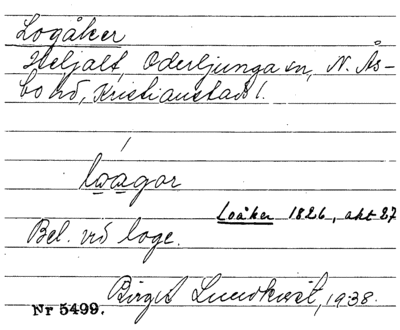 Logåker
Heljalt, Oderljunga sn, N. Ås-
bo hd, Kristianstads l.
loagor
Loåker 1826, akt 27
Bel. vid loge.
Birgit Lundkvist, 1938.
Nr 5499.